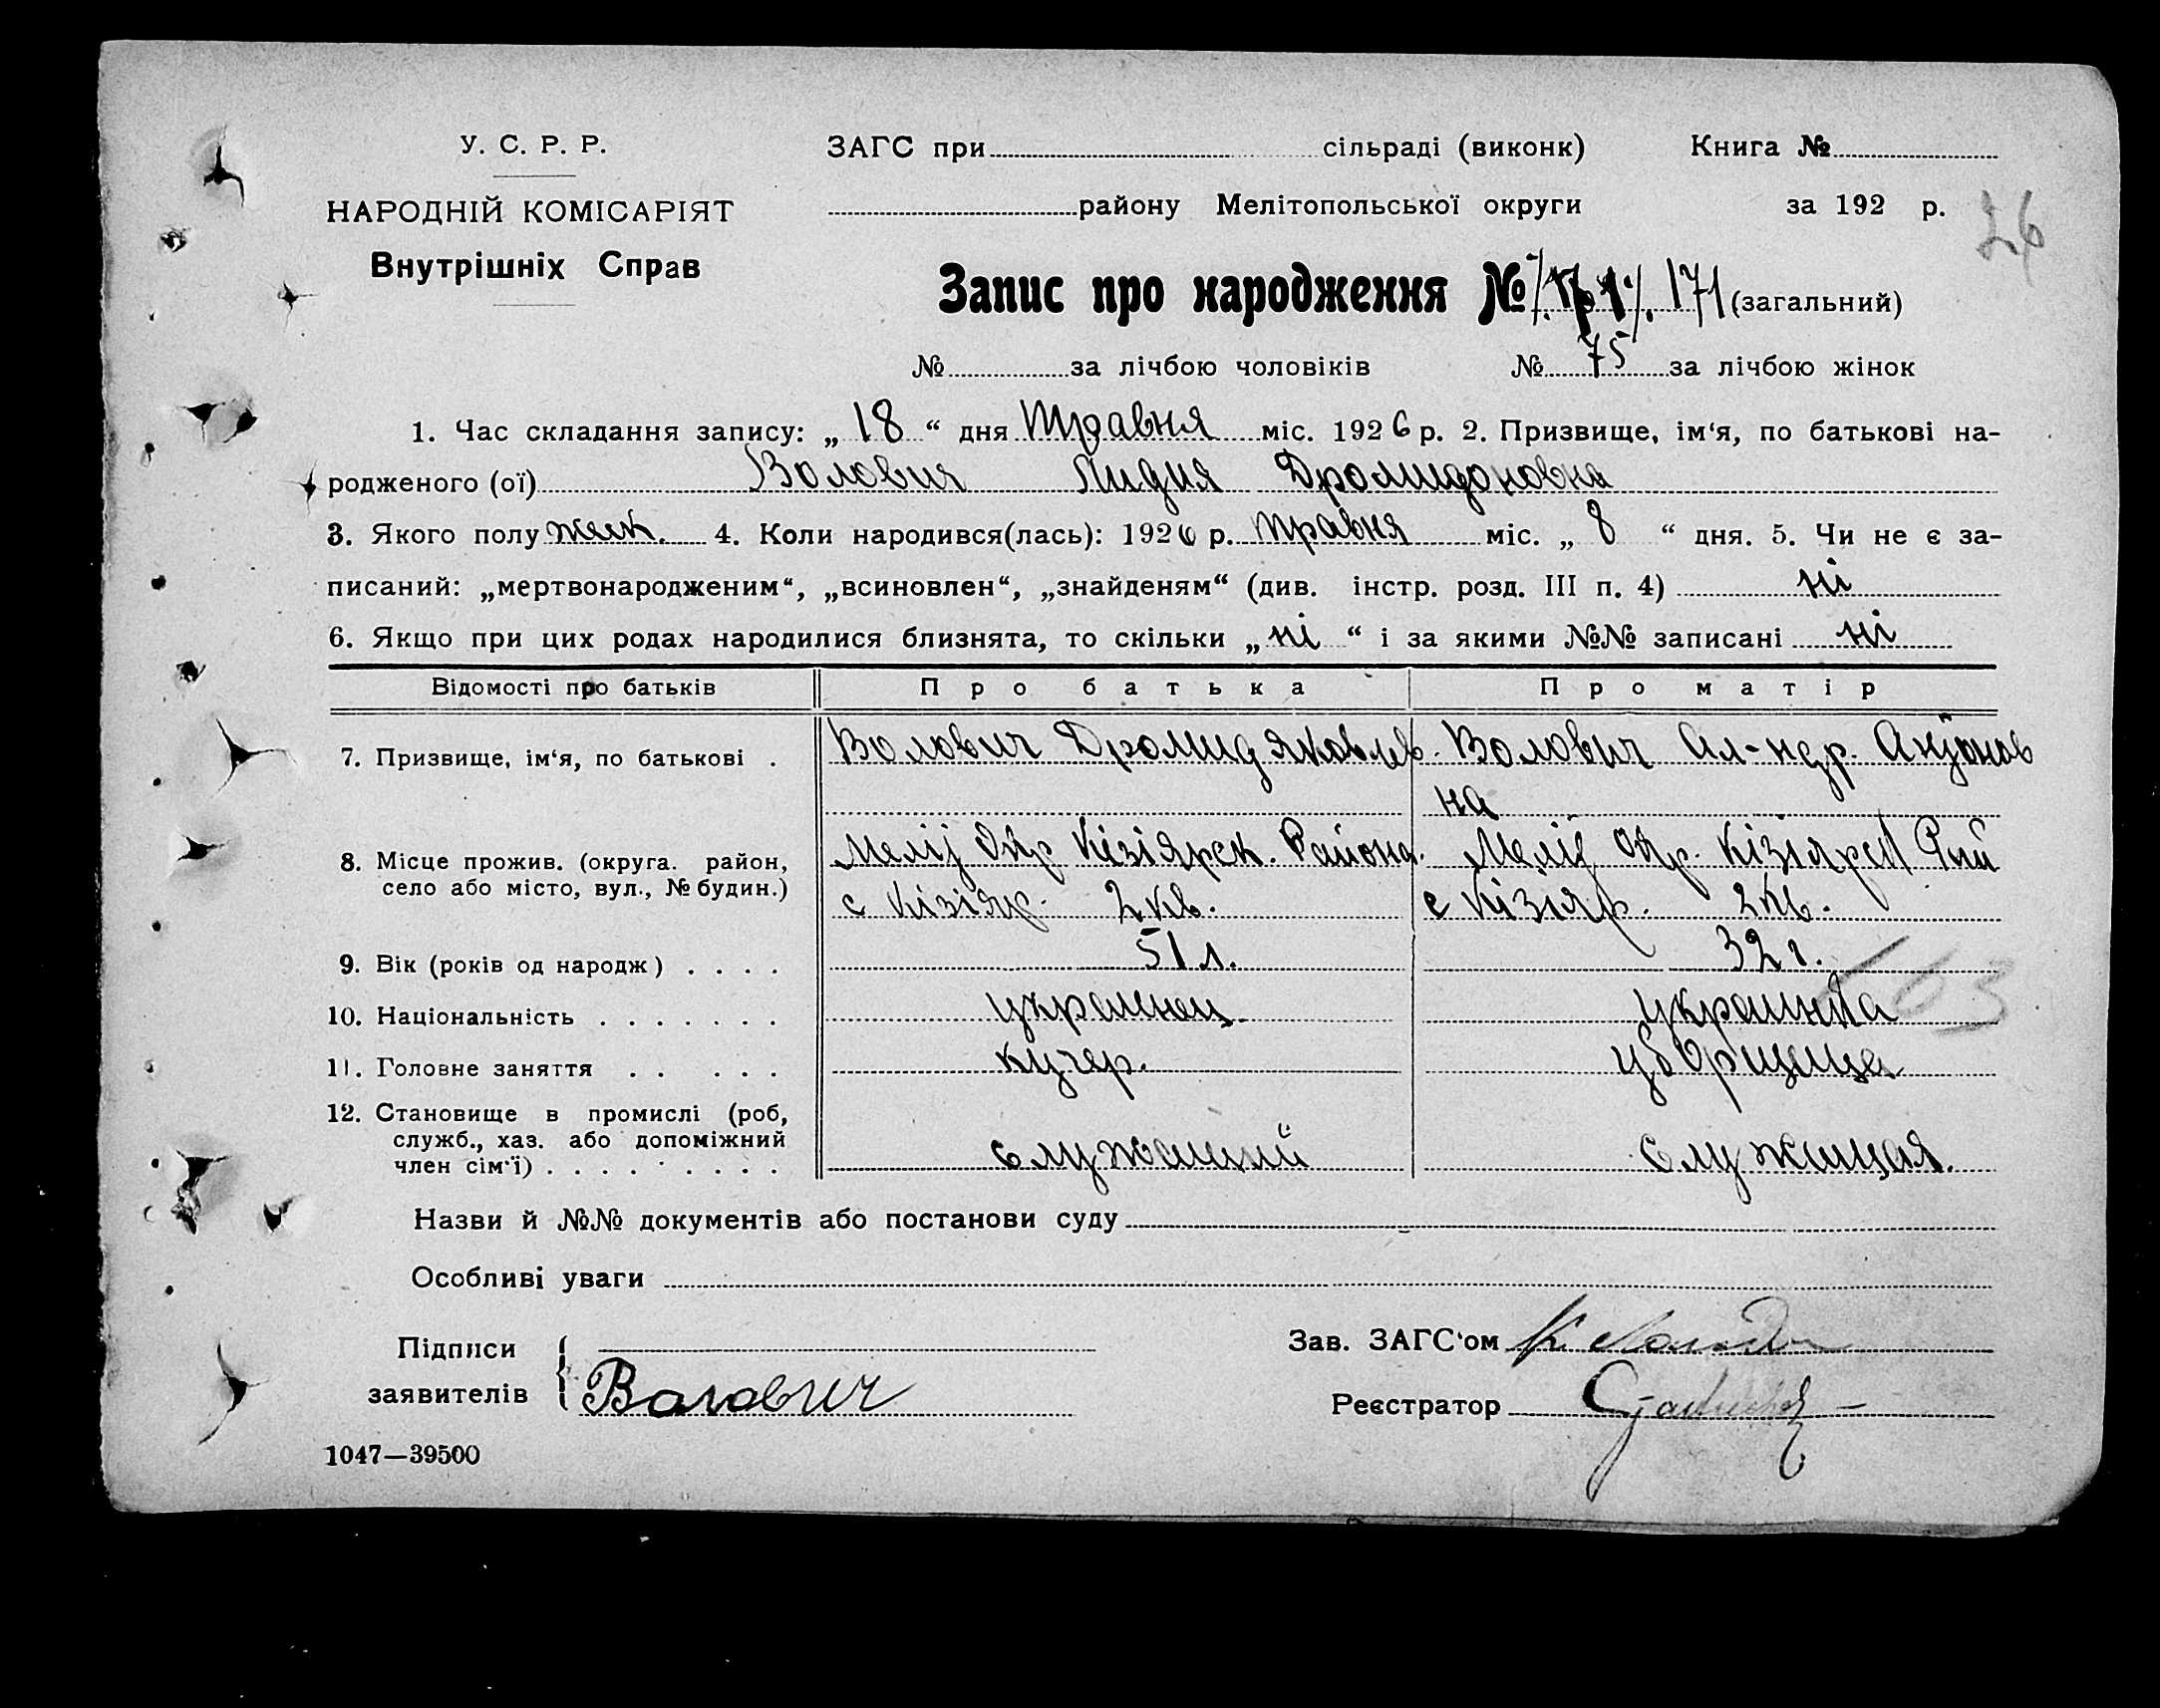 У. С. Р. Р.
ЗАГС при сільраді (виконк) Книга №
НАРОДНІЙ КОМІСАРІЯТ
району Мелітопольської округи за 192 р.
26
Внутрішніх Справ
Запис про народження № 171 (загальний)
№ за лічбою чоловіків № 75 за лічбою жінок
1. Час складання запису: „ 18 “ дня Травня міс. 1926 р. 2. Призвище, ім‘я, по батькові на-
родженого (ої) Волович Лидия Дромидоновна
3. Якого полу жен. 4. Коли народився(лась): 1926 р. травня міс. „ 8 “ дня. 5. Чи не є за-
писаний: „мертвонародженим“, „всиновлен“, „знайденям“ (див. інстр. розд. III п. 4) ні
6. Якщо при цих родах народилися близнята, то скільки „ ні “ і за якими №№ записані ні
Відомості про батьків Про батька Про матір
7. Призвище, ім‘я, по батькові . Волович Дромид Яковлев. Волович Ал-ндр. Антонов
на
8. Місце прожив. (округа. район, Меліт Окр Кізіярск. Района. Меліт Окр. Кізіярск Рай
село або місто, вул., № будин.) с Кізіяр. 2 кв. с Кізіяр. 2 кв.
9. Вік (років од народж) . . . . 51 л. 32 г.
603
10. Національність . . . . . . . украинец украинка
11. Головне заняття . . . . . кучер. уборщица
12. Становище в промислі (роб,
служб., хаз. або допоміжний
член сім‘ї) . . . . . . . . . служащий служащая.
Назви й №№ документів або постанови суду
Особливі уваги
Підписи
Зав. ЗАГС‘ом
заявителів Волович
Реєстратор
1047—39500